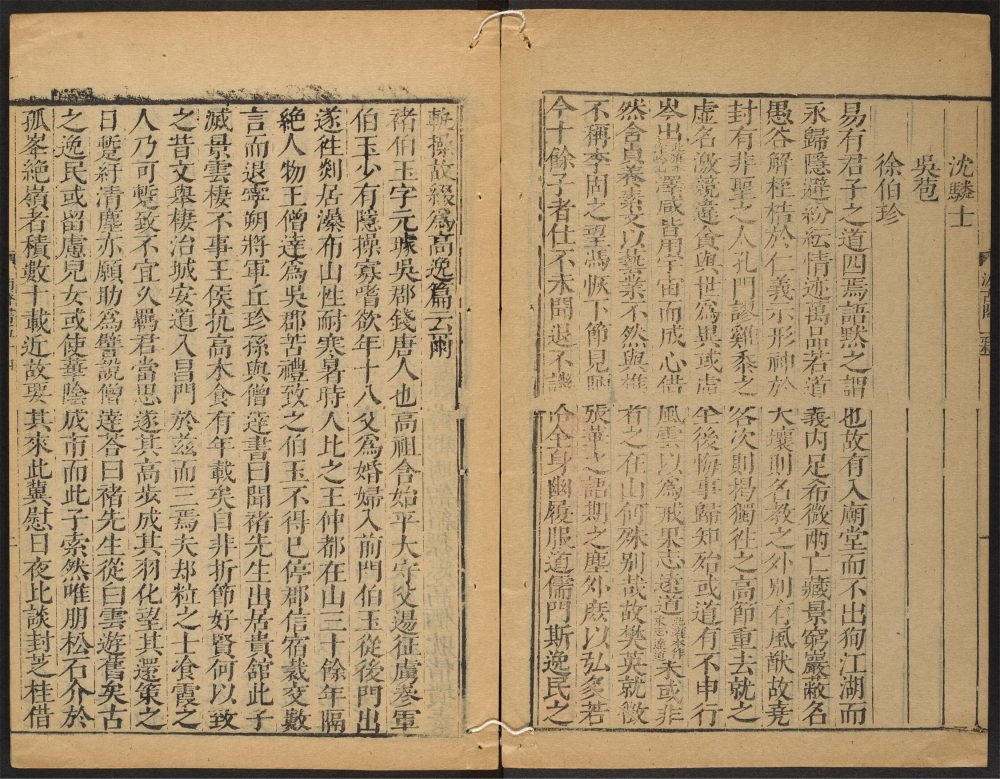 沈驎士
吳苞
徐伯珍
易有君子之道四焉語默之謂也故有入廟堂而不出狥江湖而
永歸隱避紛紜情迹萬品若道義內足希微兩亡藏景窮巖蔽名
愚谷解桎梏於仁義示形神於天壤則名教之外別有風猷故堯
封有非聖之人孔門謬雞黍之客次則揭獨往之高節重去就之
虛名激競違貪與世爲異或慮全後悔事歸知殆或道有不申行
吟山澤咸皆用宇宙而成心借風雲以爲戒果志達道未或非
然含貞養素文以藝業不然與樵者之在山何殊別哉故樊英就徵
不稱李固之望馮恢下節見貶張華之語期之塵外庶以弘多若
今十餘子者仕不求聞退不譏俗全身幽履服道儒門斯逸民之
軌操故綴爲高逸篇云爾
褚伯玉字元璩吳郡錢唐人也高祖含始平太守父逷征虜參軍
伯玉少有隱操寡嗜欲年十八父爲婚婦入前門伯玉從後門出
遂往剡居瀑布山性耐寒暑時人比之王仲都在山三十餘年隔
絕人物王僧達爲吳郡苦禮致之伯玉不得已停郡信宿裁交數
言而退寧朔將軍丘珍孫與僧達書曰聞褚先生出居貴舘此子
滅景雲棲不事王侯抗高木食有年載矣自非折節好賢何以致
之昔文舉棲冶城安道入昌門於兹而三焉夫却粒之士飡霞之
人乃可蹔致不宜久羈君當思遂其高步成其羽化望其還策之
日蹔紆清塵亦願助爲譬說僧達荅曰褚先生從白雲遊舊矣古
之逸民或留慮兒女或使華陰成市而此子索然唯朋松石介於
孤峯絕嶺者積數十載近故要其來此冀慰日夜比談討芝桂借